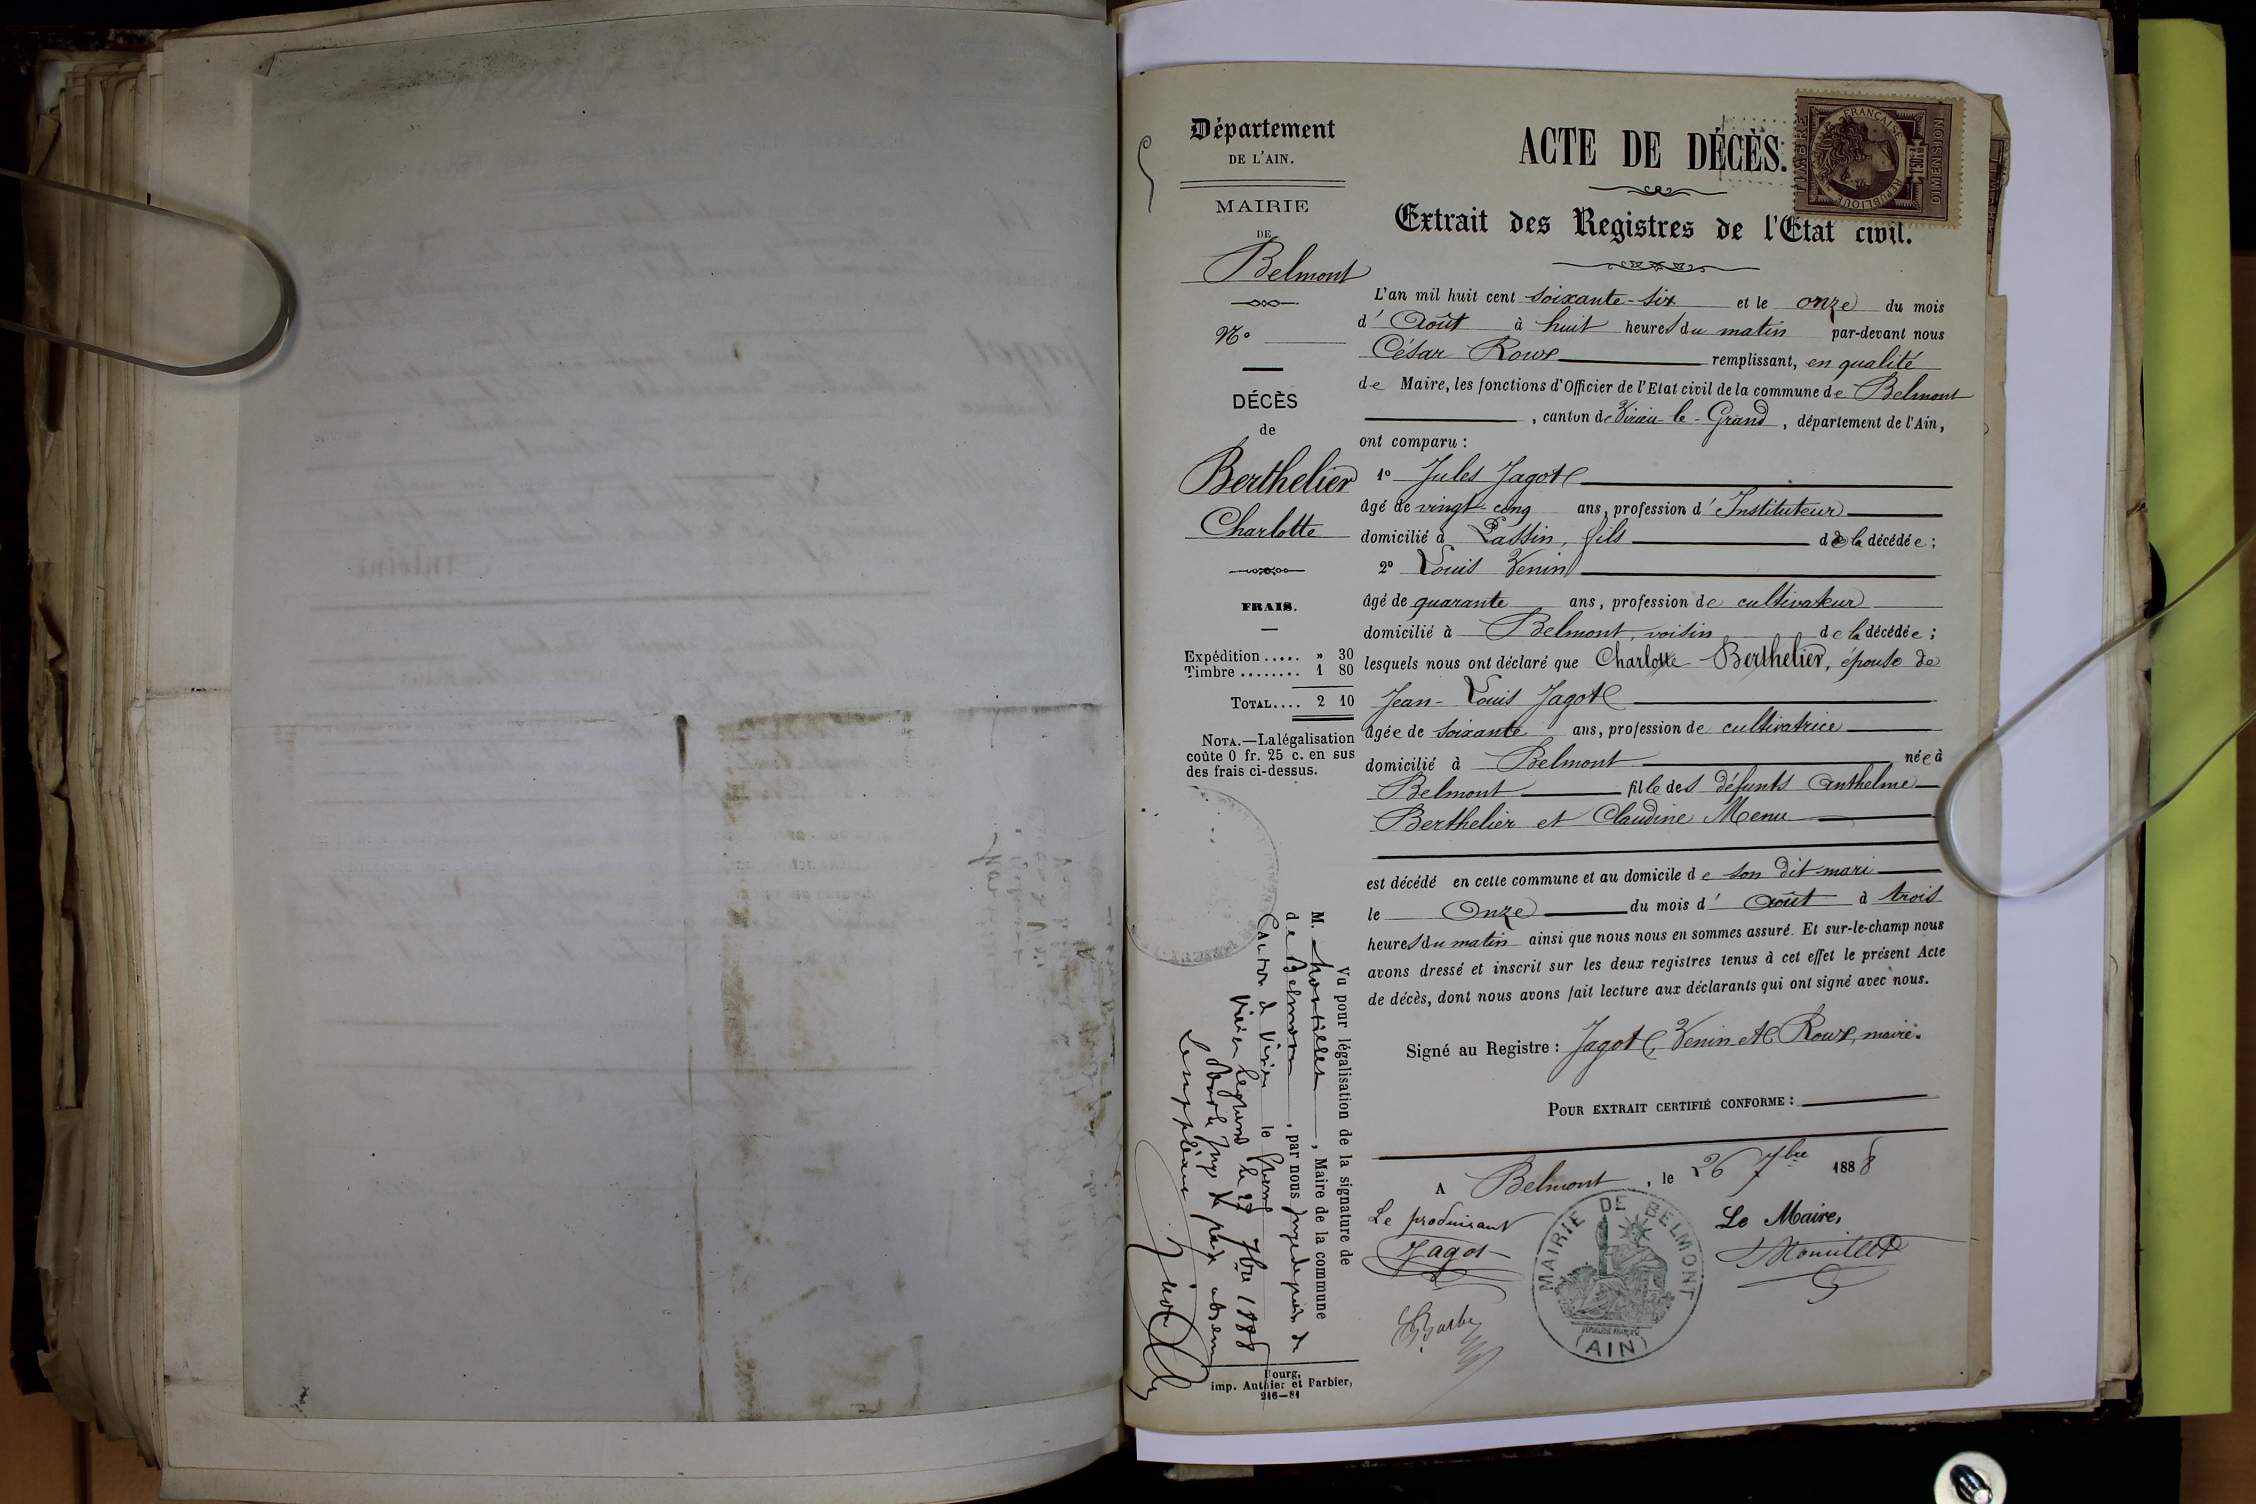 Département
DE L'AIN.
MAIRIE
DE
Belmont
N.º
DÉCÈS
de
Berthelier
Charlotte
FRAIS.
Expédition ..... » 30
Timbre ........ 1 80
TOTAL.... 2 10
NOTA.—La légalisation
coûte 0 fr. 25 c. en sus
des frais ci-dessus.
ACTE DE DÉCÈS.
TIMBRE
RÉPUBLIQUE FRANÇAISE
DIMENSION
Extrait des Registres de l'Etat civil.
L'an mil huit cent soixante-six et le onze du mois
d' Août à huit heures du matin par-devant nous
César Roux remplissant, en qualité
de Maire, les fonctions d'Officier de l'Etat civil de la commune de Belmont
, canton de Virieu-le-Grand, département de l'Ain,
ont comparu :
1º Jules Jagot
âgé de vingt-cinq ans, profession d'Instituteur
domicilié à Passin, fils de la décédée ;
2º Louis Venin
âgé de quarante ans, profession de cultivateur
domicilié à Belmont, voisin de la décédée ;
lesquels nous ont déclaré que Charlotte Berthelier, épouse de
Jean-Louis Jagot
âgée de soixante ans, profession de cultivatrice
domicilié à Belmont née à
Belmont fille des défunts Anthelme
Berthelier et Claudine Menu
est décédé en cette commune et au domicile de son dit mari
le Onze du mois d' Août à trois
heures du matin ainsi que nous nous en sommes assuré. Et sur-le-champ nous
avons dressé et inscrit sur les deux registres tenus à cet effet le présent Acte
de décès, dont nous avons fait lecture aux déclarants qui ont signé avec nous.
Signé au Registre : Jagot, Venin et Roux, maire.
POUR EXTRAIT CERTIFIÉ CONFORME :
A Belmont, le 26 7bre 1888
Le produisant
Jagot
Le Maire,
MAIRIE DE BELMONT
(AIN)
Vu pour légalisation de la signature de
M. , Maire de la commune
de Belmont, par nous juge de paix de
Canton de Virieu le Grand
Virieu legrand le 27 7bre 1888
juge de paix absent
Le suppléant
Bourg,
imp. Authier et Barbier,
216—81